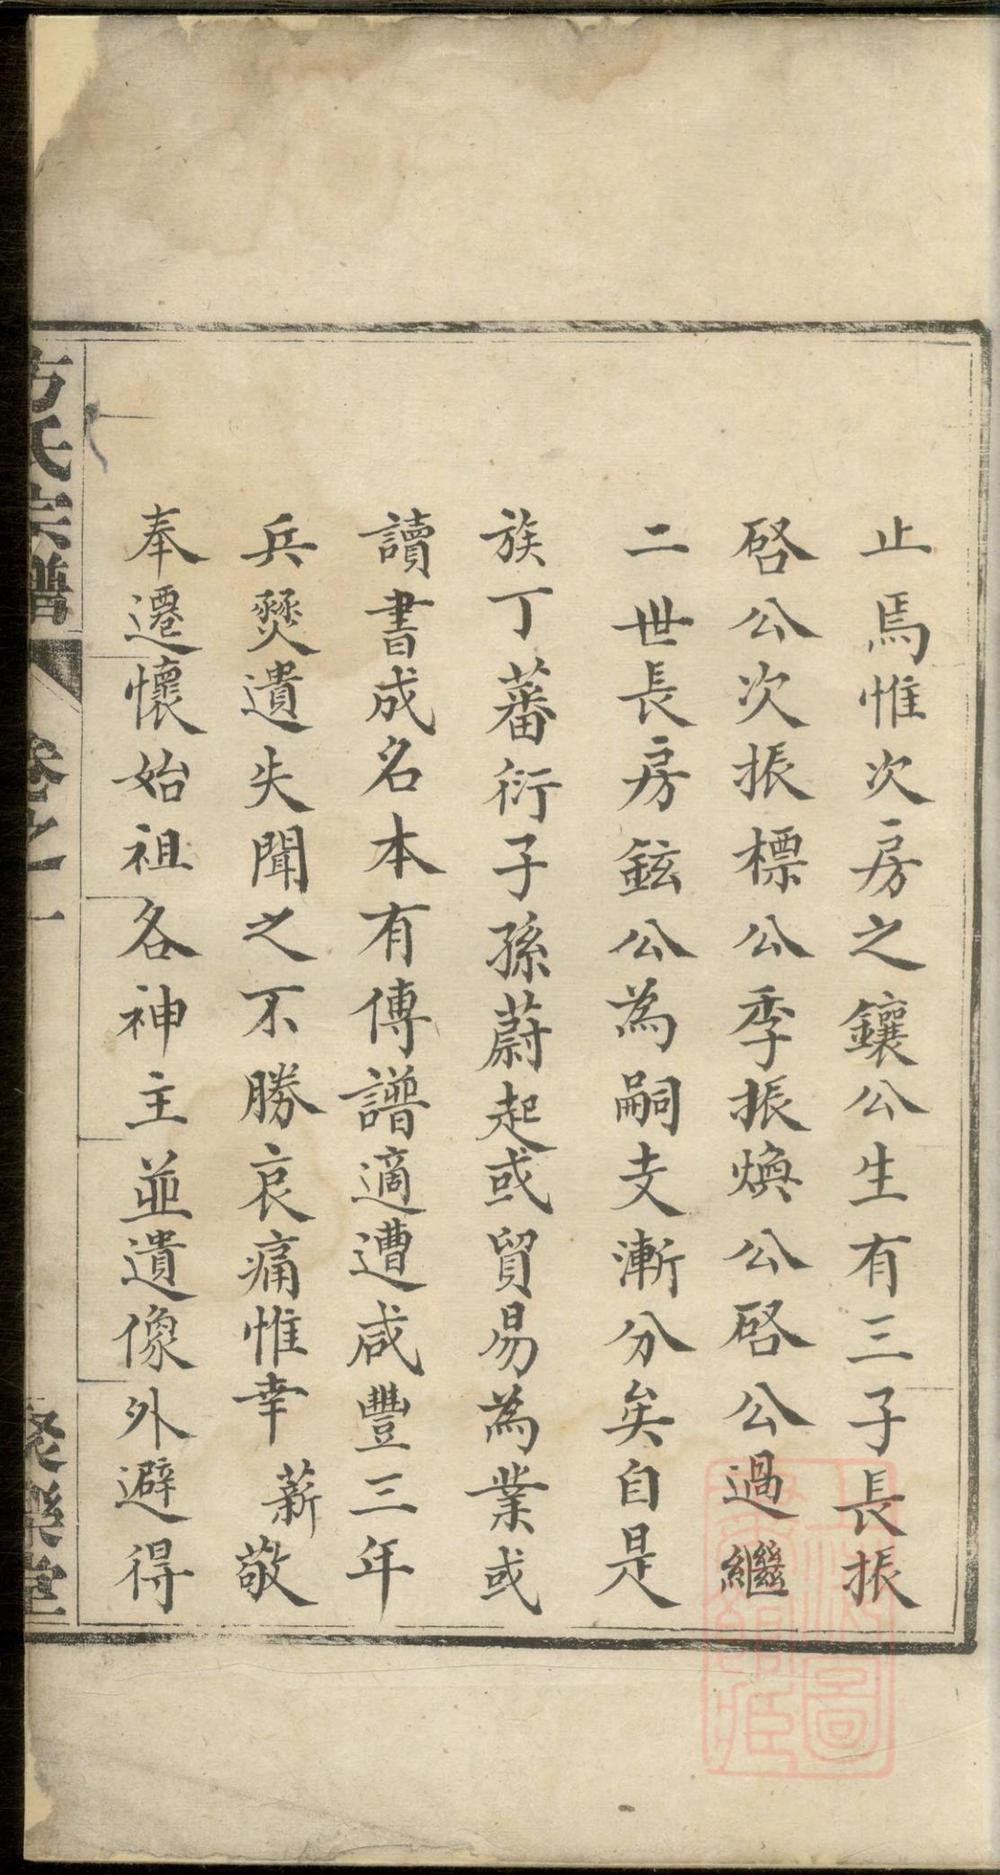 止焉惟次房之鑲公生有三子長振
啓公次振標公季振煥公啓公過繼
二世長房鉉公為嗣支漸分矣自是
族丁蕃衍子孫蔚起或貿易為業或
讀書成名本有傳譜適遭咸豐三年
兵燹遺失聞之不勝哀痛惟幸薪敬
奉遷懷始祖各神主並遺像外避得
方氏宗譜
卷之一
聚樂堂